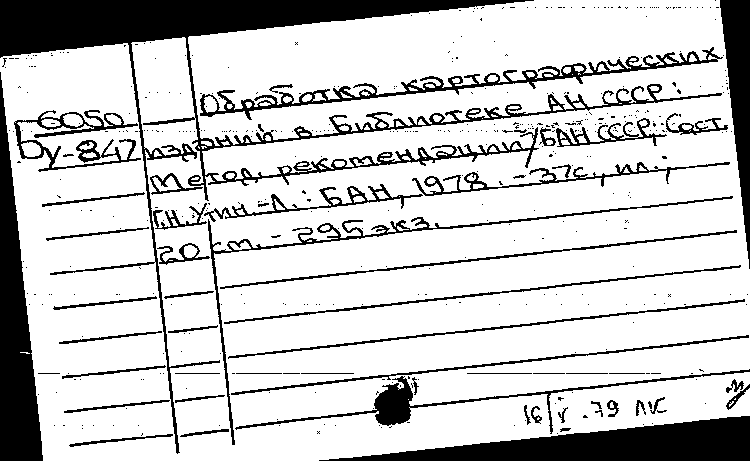 Б 6050
У-847
Обработка картографических
изданий в Библиотеке АН СССР:
Метод. рекомендации / БАН СССР; Сост.
Г.Н. Утин. - Л.: БАН, 1978. - 37с., ил.;
20 см. - 295 экз.
16/V.79